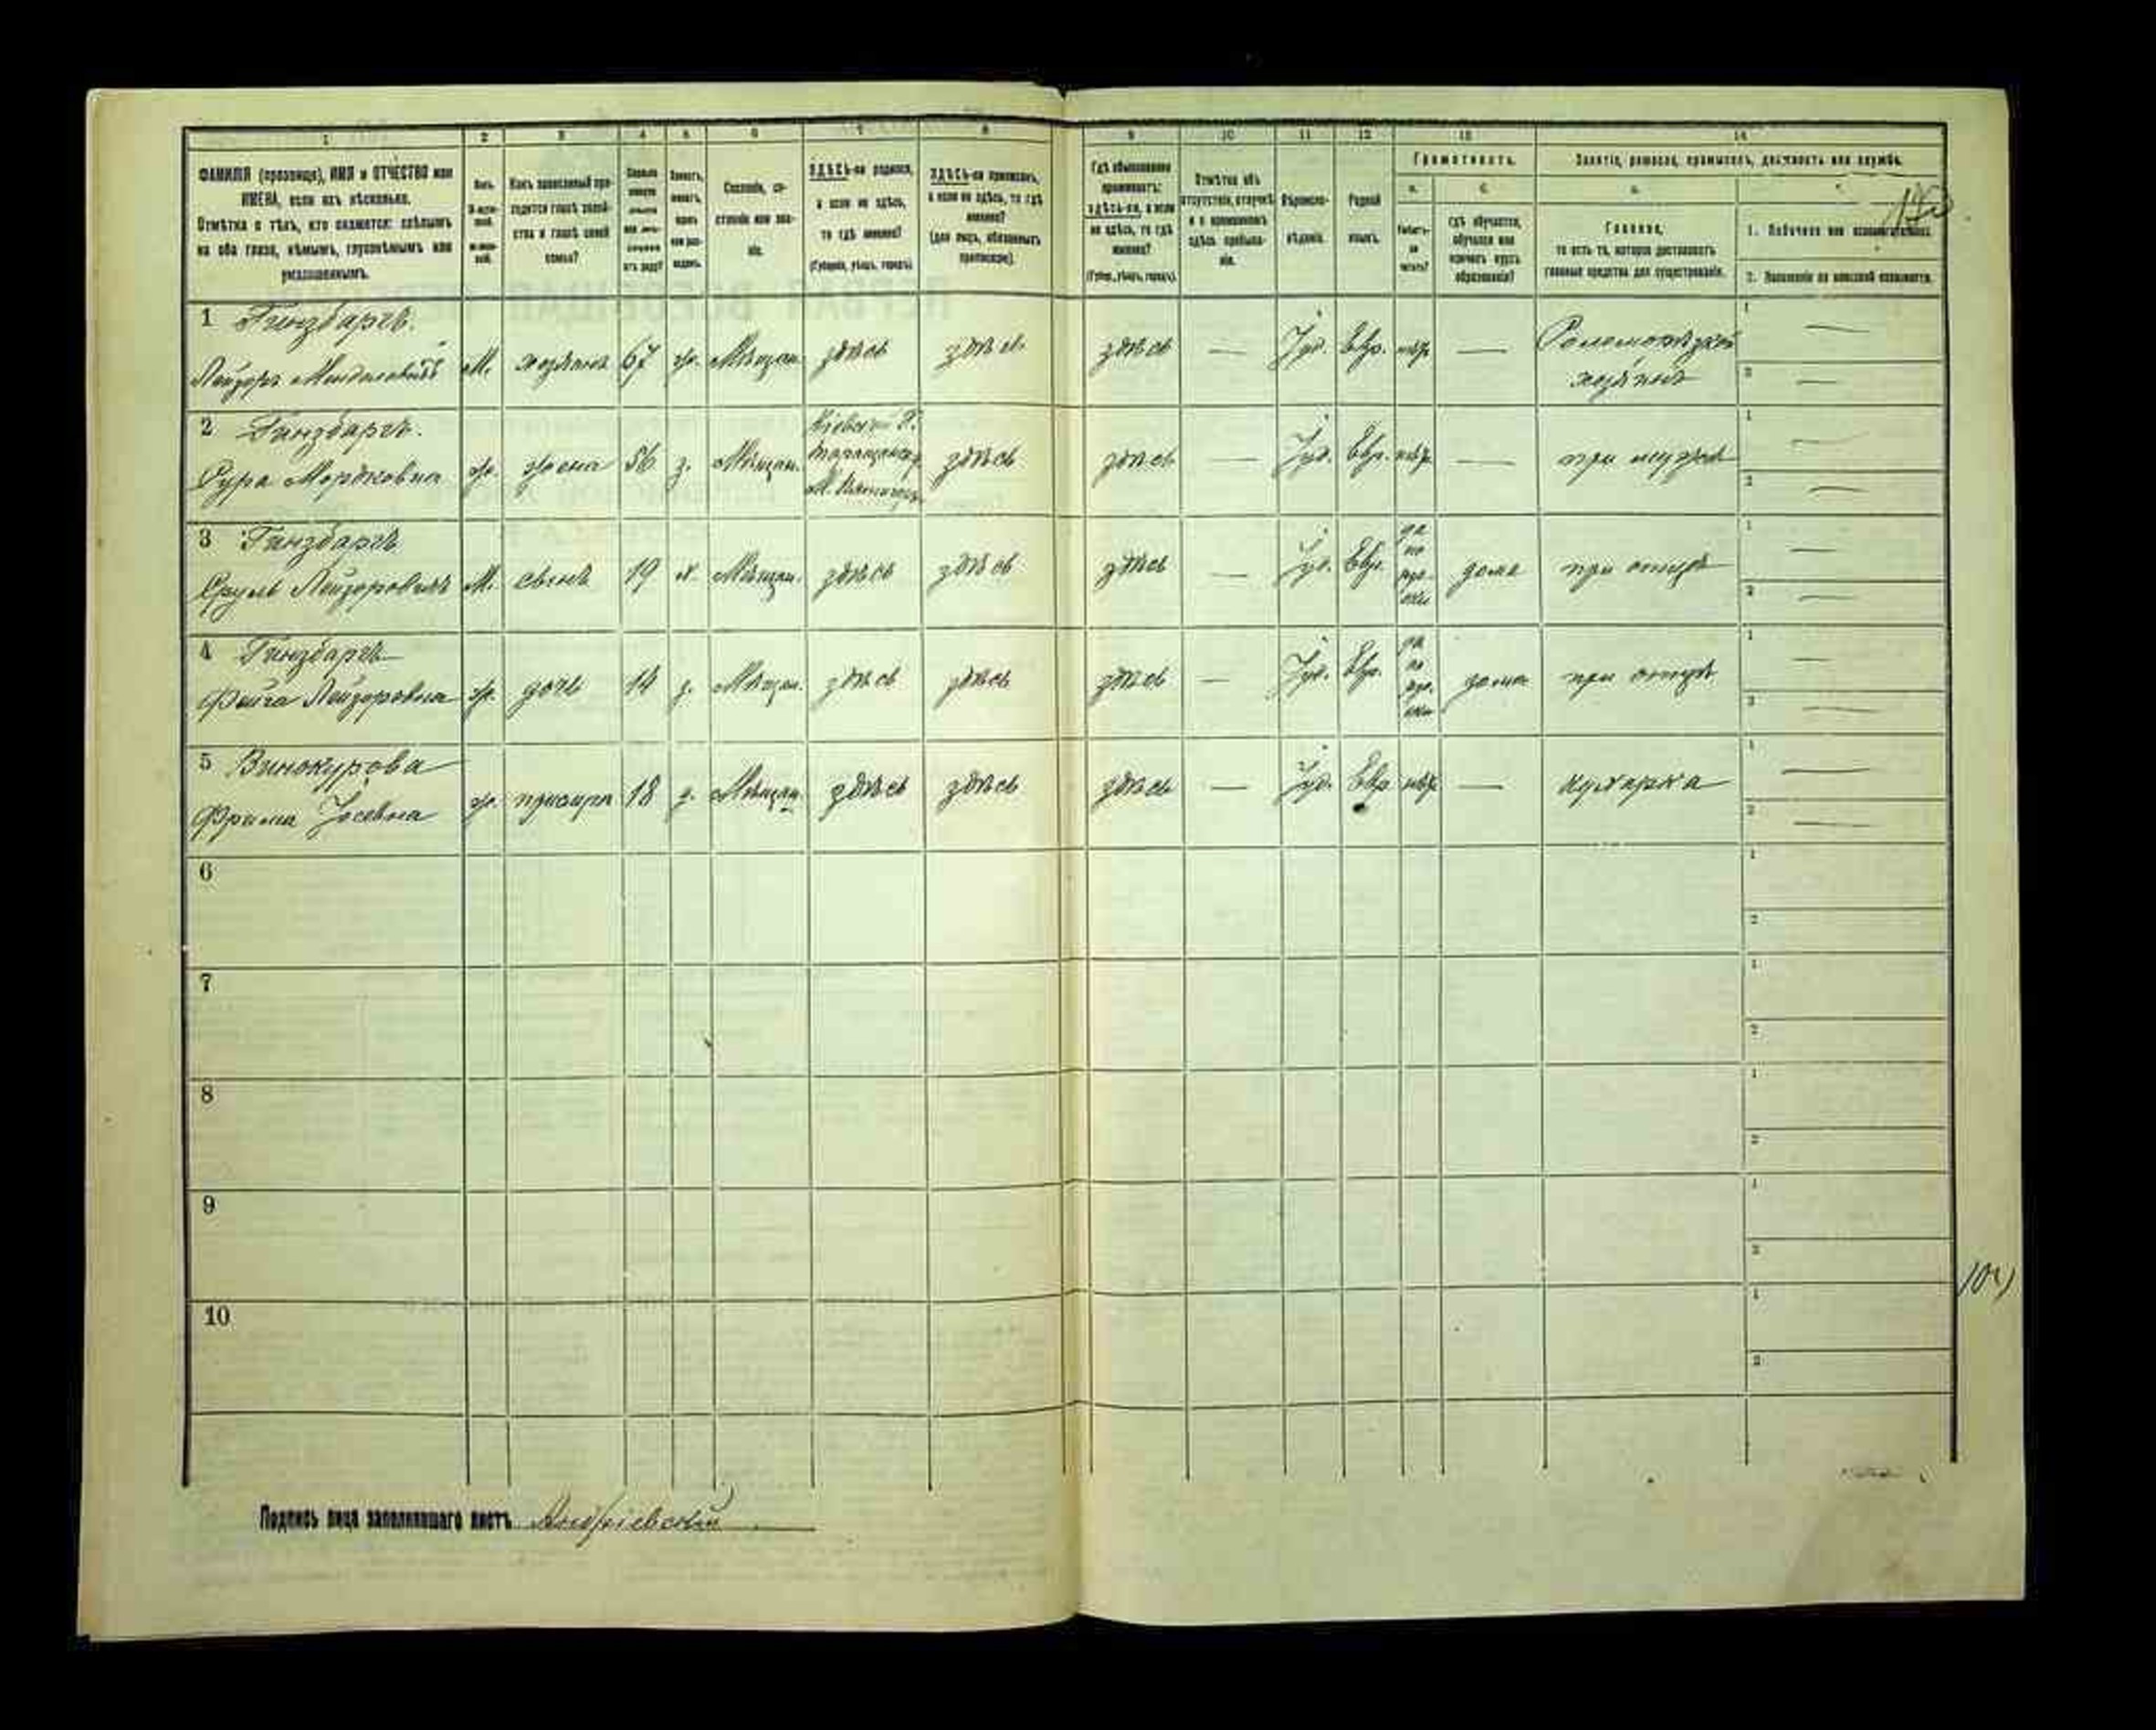 1 2 3 4 5 6 7 8 9 10 11 12 13 14
ФАМИЛІЯ (прозвище), ИМЯ и ОТЧЕСТВО или
ИМЕНА, если ихъ нѣсколько.
Отмѣтка о тѣхъ, кто окажется: слѣпымъ
на оба глаза, нѣмымъ, глухонѣмымъ или
умалишеннымъ.
Какъ записанный при-
ходится главѣ хозяй-
ства и главѣ своей
семьи?
Сословіе, со-
стояніе или зва-
ніе.
ЗДѢСЬ-ли родился,
а если не здѣсь,
то гдѣ именно?
(Губернія, уѣздъ, городъ)
ЗДѢСЬ-ли приписанъ,
а если не здѣсь, то гдѣ
именно?
(для лицъ, обязанныхъ
припискою)
Гдѣ обыкновенно
проживаетъ:
здѣсь-ли, а если
не здѣсь, то гдѣ
именно?
(Губер., уѣздъ, городъ)
Отмѣтка объ
отсутствіи, отлучкѣ
и о временномъ
здѣсь пребыва-
ніи.
Вѣроиспо-
вѣданіе.
Родной
языкъ.
Грамотность.
а.
Умѣетъ-
ли
читать?
б.
Гдѣ обучается,
обучался или
кончилъ курсъ
образованія?
Занятіе, ремесло, промыселъ, должность или служба.
а.
Главное,
то есть то, которое доставляетъ
главныя средства для существованія.
1. Побочное или вспомогательное.
2. Положеніе по воинской повинности.
1 Гинзбаргъ.
Лейзоръ Менделевичъ М. хозяинъ 67 ж. Мѣщан. здѣсь здѣсь здѣсь — Іуд. Евр. нѣтъ —
хозяинъ
1 —
2 —
2 Гинзбаргъ.
Сура Мордковна ж. жена 56 з. Мѣщан. здѣсь здѣсь — Іуд. Евр. нѣтъ — при мужѣ
Кіевской Г.
1 —
2 —
3 Гинзбаргъ
Сруль Лейзоровичъ М. сынъ 19 х. Мѣщан. здѣсь здѣсь здѣсь — Іуд. Евр. да по рус- ски дома при отцѣ
1 —
2 —
4 Гинзбаргъ
Фейга Лейзоровна ж. дочь 14 д. Мѣщан. здѣсь здѣсь здѣсь — Іуд. Евр. да по рус- ски дома при отцѣ
1 —
2 —
5 Винокурова
Фрима Іосевна ж. прислуга 18 д. Мѣщан. здѣсь здѣсь здѣсь — Іуд. Евр. нѣтъ — кухарка
1 —
2 —
6
1
2
7
1
2
8
1
2
9
1
2
10
1
2
Подпись лица заполнившаго листъ Андріевскій